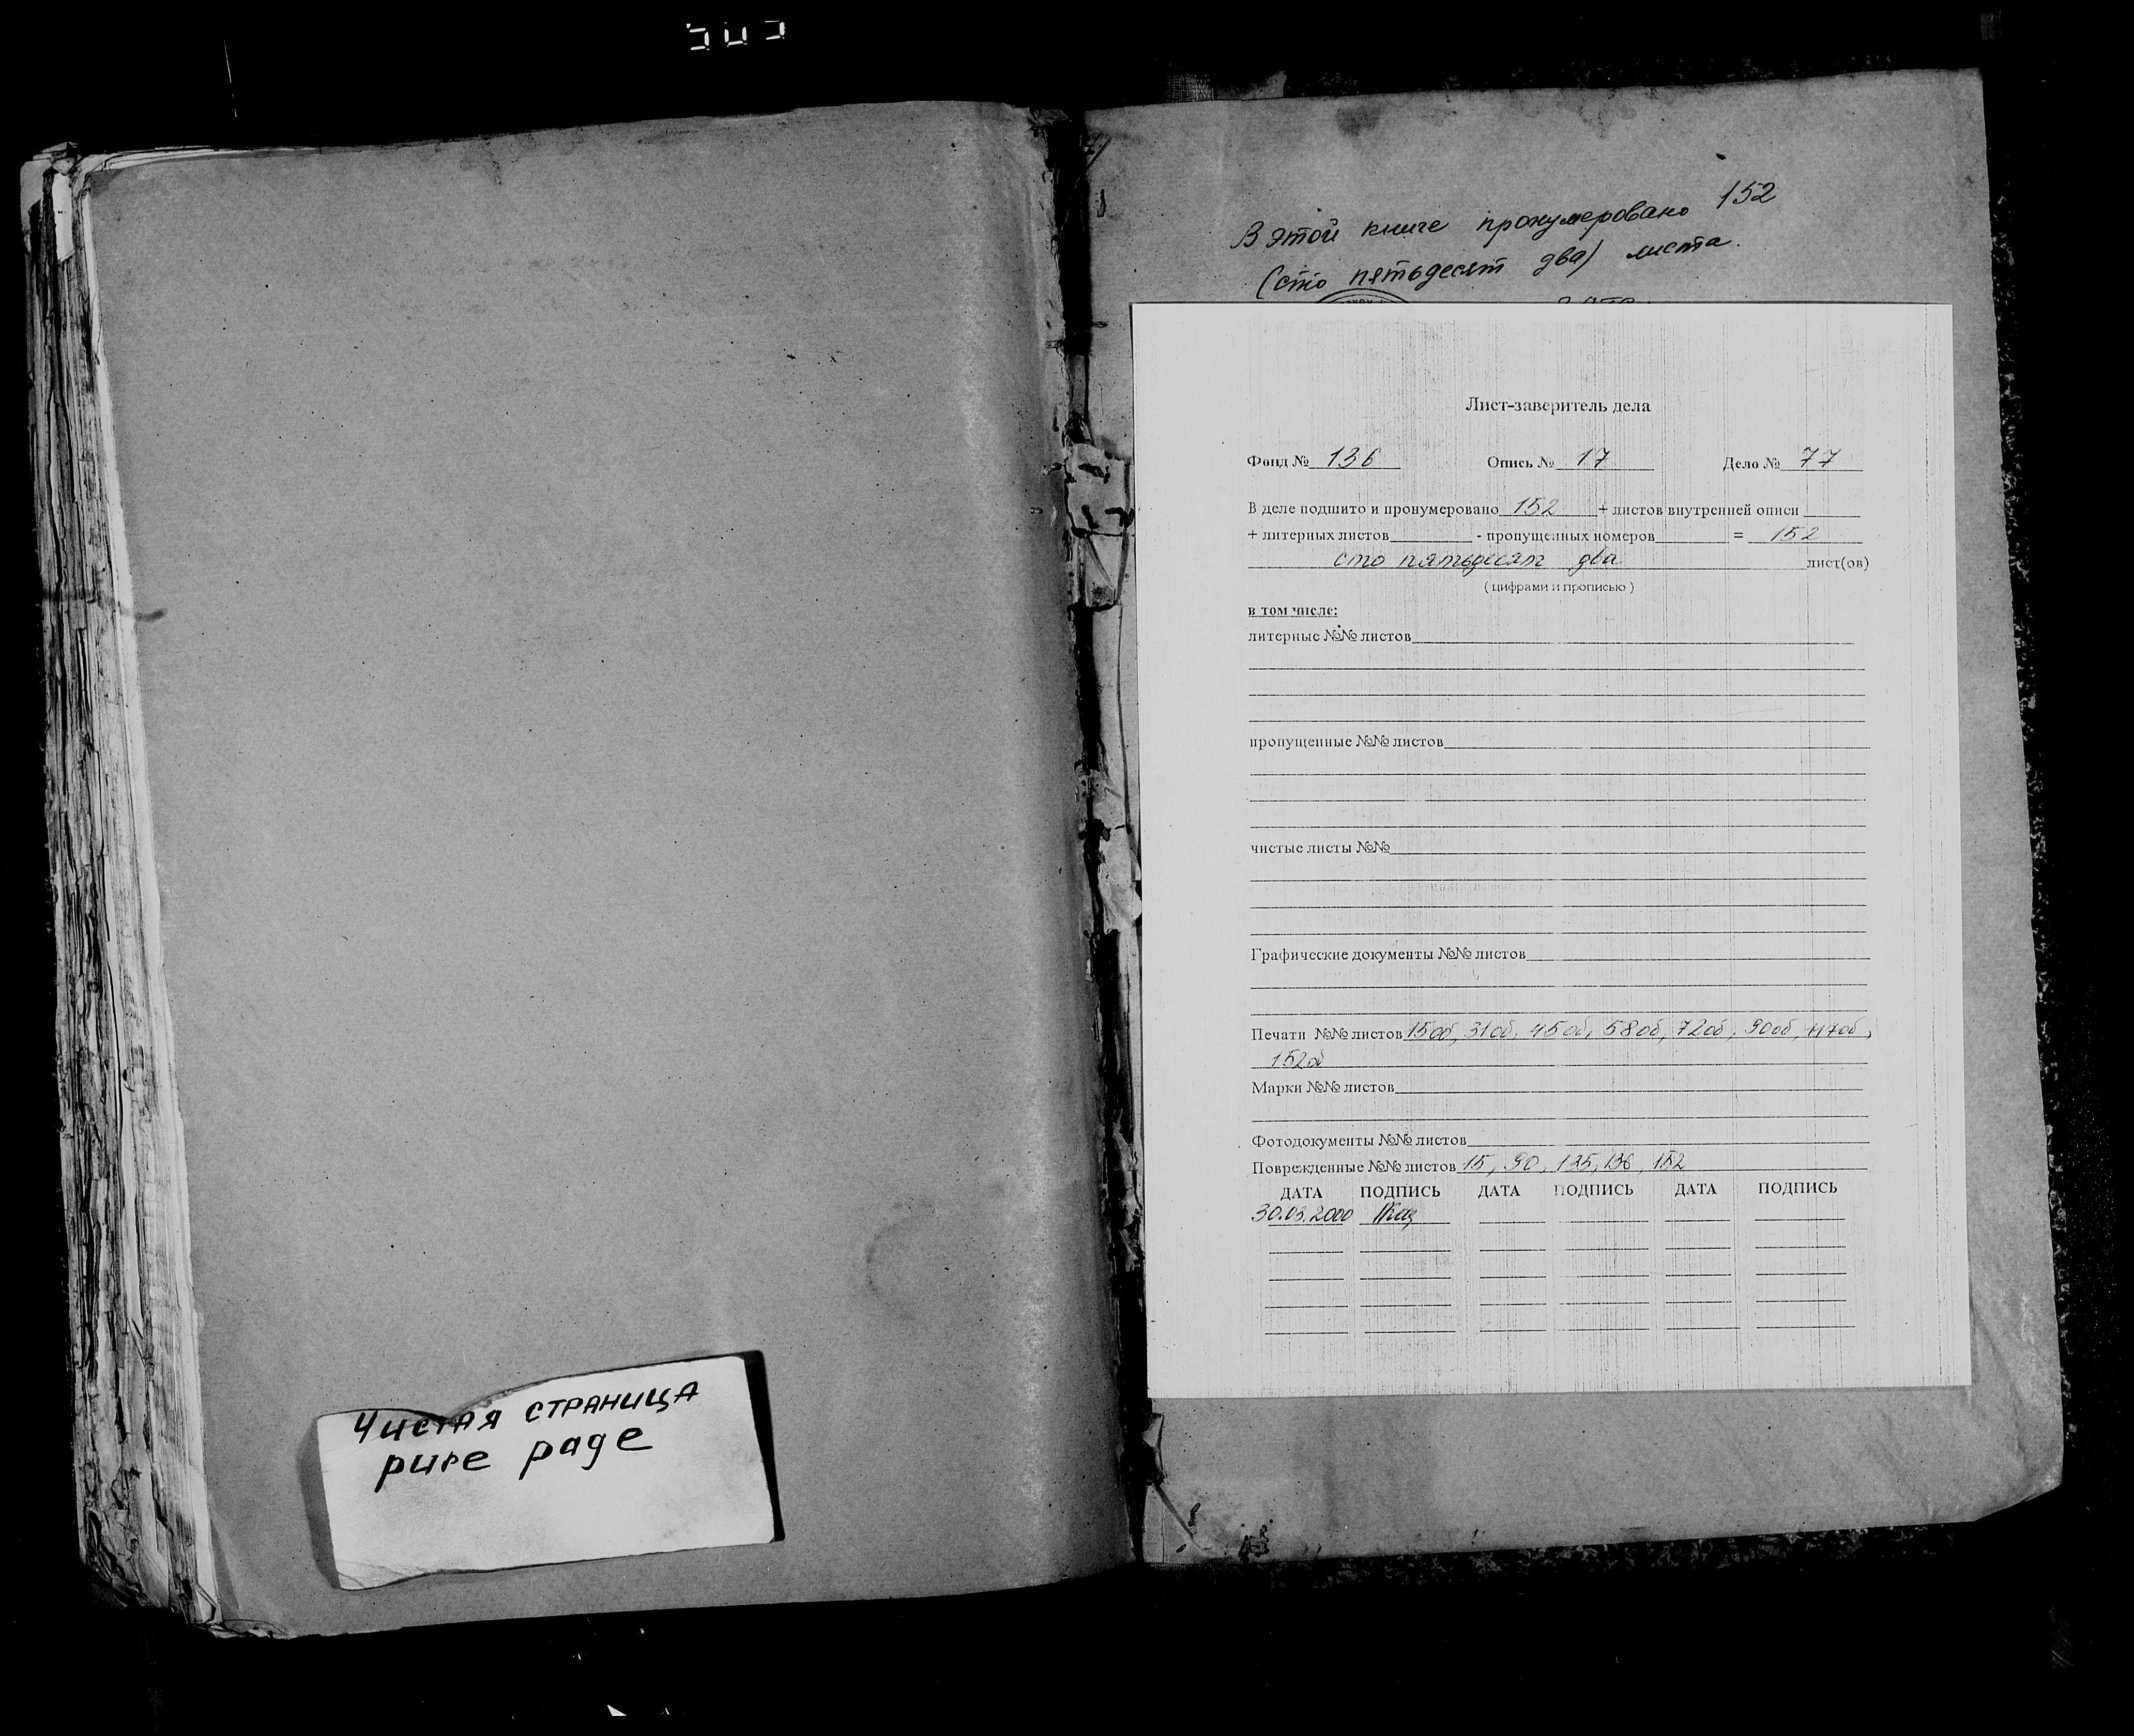 Чистая страница
pure page
В этой книге пронумеровано 152
(сто пятьдесят два) листа.
Лист-заверитель дела
Фонд № 136 Опись № 17 Дело № 77
В деле подшито и пронумеровано 152 + листов внутренней описи
+ литерных листов - пропущенных номеров = 152
сто пятьдесят два лист(ов)
( цифрами и прописью )
в том числе:
литерные №№ листов
пропущенные №№ листов
чистые листы №№
Графические документы №№ листов
Печати №№ листов 15об, 31об, 45об, 58об, 72об, 90об, 117об,
152об
Марки №№ листов
Фотодокументы №№ листов
Поврежденные №№ листов 15, 90, 135, 136, 152
ДАТА ПОДПИСЬ ДАТА ПОДПИСЬ ДАТА ПОДПИСЬ
30.03.2000